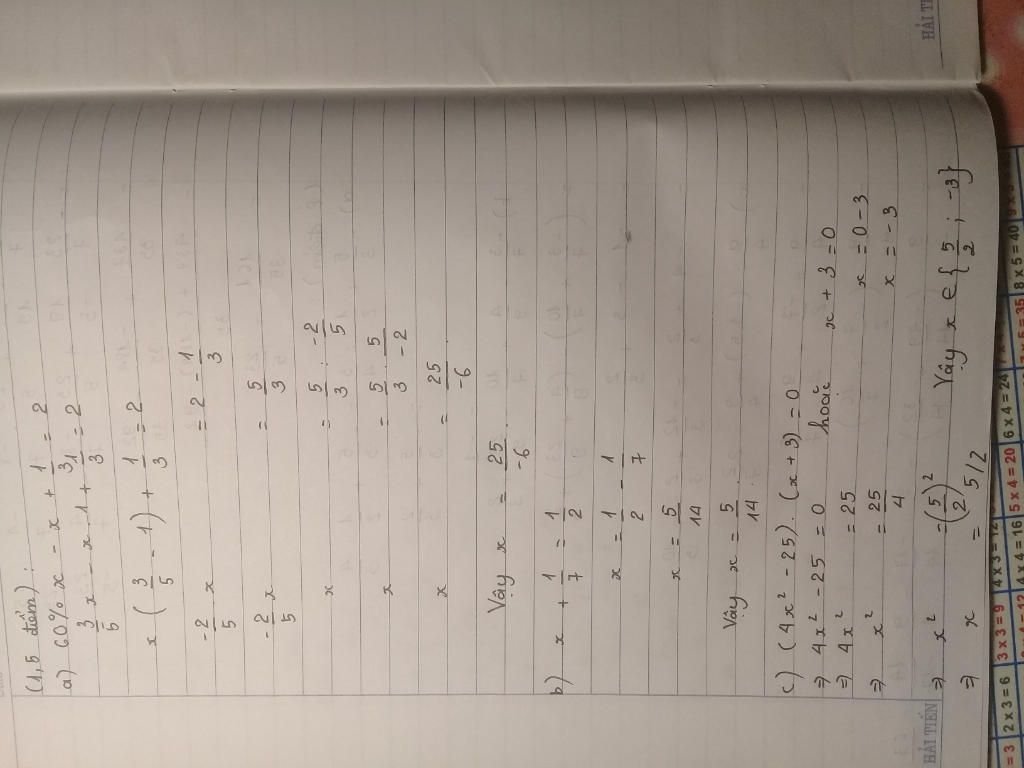 (1,5 điểm) :
a) 60% x - x + 1/3 = 2
3/5 x - x . 1 + 1/3 = 2
x (3/5 - 1) + 1/3 = 2
-2/5 . x = 2 - 1/3
-2/5 x = 5/3
x = 5/3 : -2/5
x = 5/3 . 5/-2
x = 25/-6
Vậy x = 25/-6
b) x + 1/7 = 1/2
x = 1/2 - 1/7
x = 5/14
Vậy x = 5/14
c) (4x² - 25) . (x + 3) = 0
⇒ 4x² - 25 = 0 hoặc x + 3 = 0
⇒ 4x² = 25 x = 0 - 3
⇒ x² = 25/4 x = -3
⇒ x² = (5/2)² Vậy x ∈ {5/2 ; -3}
⇒ x = 5/2
HẢI TIẾN
HẢI TIẾ
= 3 2 x 3 = 6 3 x 3 = 9 4 x 3 = 12 6 x 4 = 24
4 x 4 = 16 5 x 4 = 20 7 x 5 = 35 8 x 5 = 40